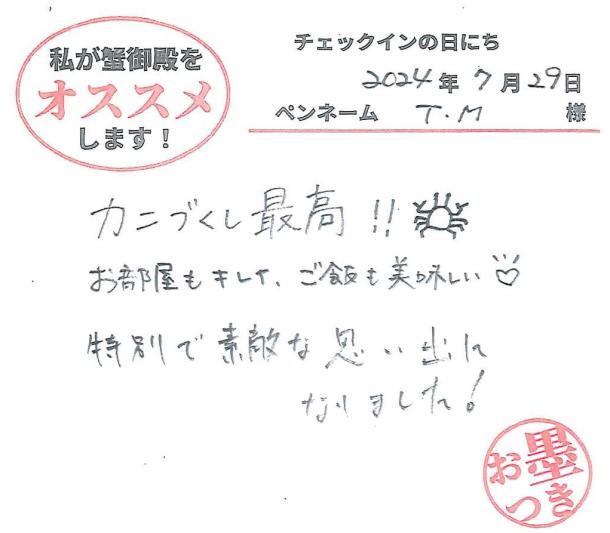 私が蟹御殿を
オススメ
します!
チェックインの日にち
2024年7月29日
ペンネーム T.M 様
カニづくし最高!!
お部屋もキレイ、ご飯も美味しい♡
特別で素敵な思い出に
なりました!
お墨
つき